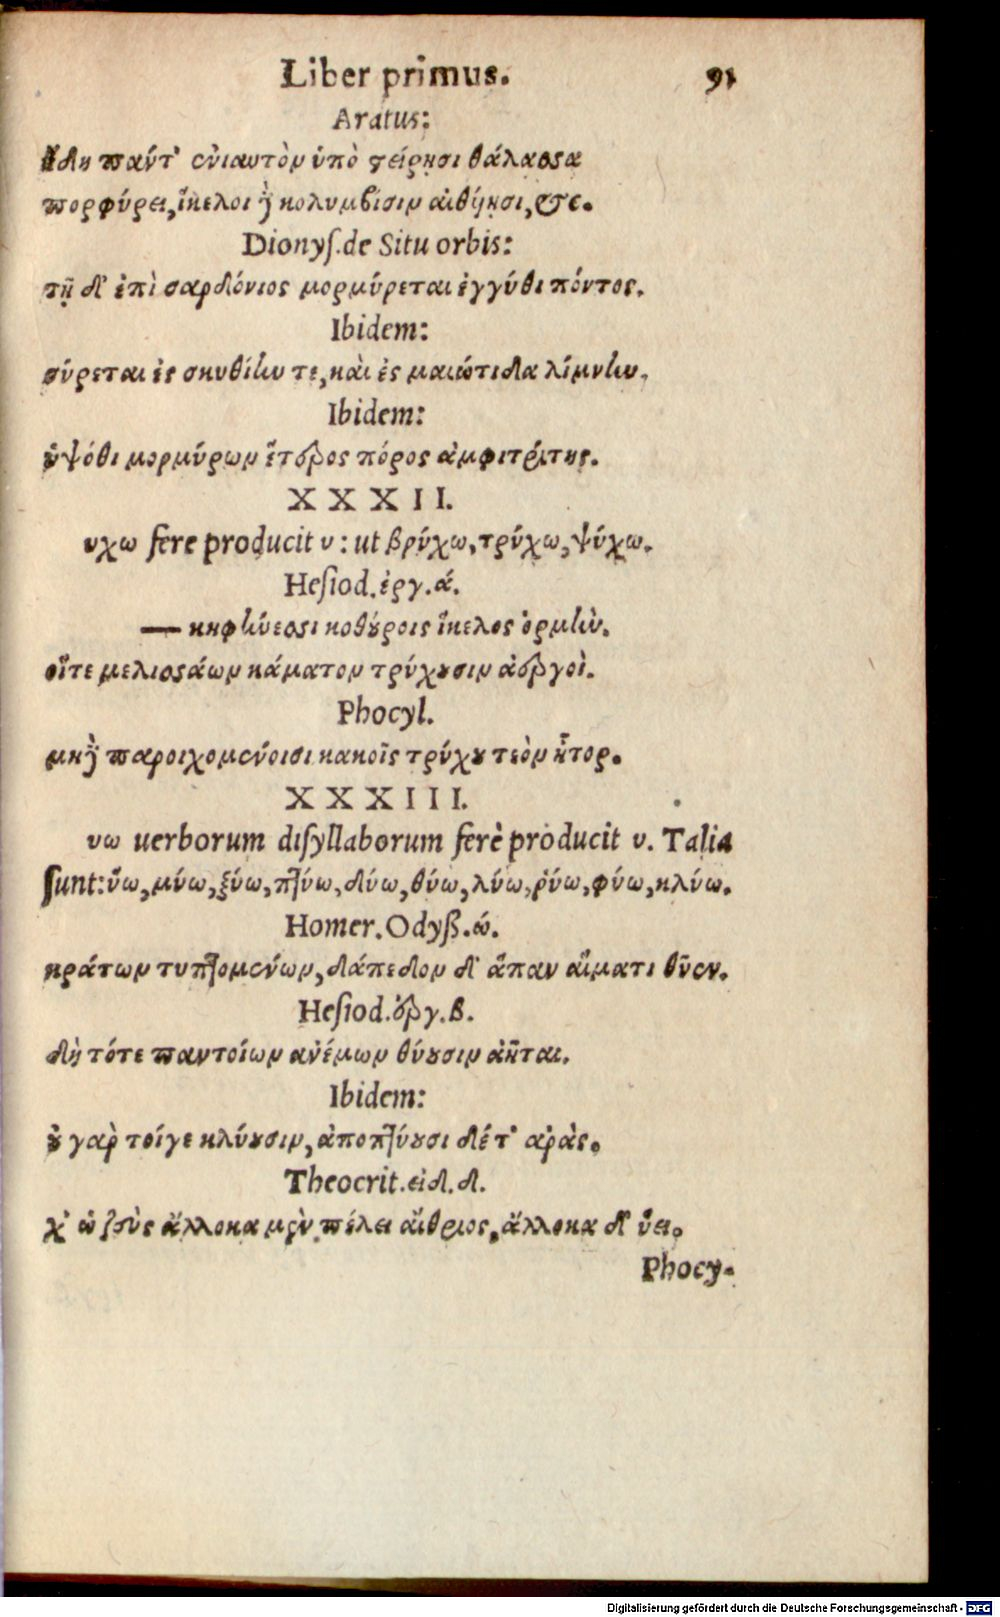 Liber primus. 91
Aratus:
ἤδη παντ' ἐνιαυτὸν ὑπὸ στείρῃσι θάλασσα
πορφύρει, ἴκελοι δὲ κολυμβίσιν αἰθύῃσι, &c.
Dionyſ. de Situ orbis:
τῇ δ' ἐπὶ σαρδόνιος μορμύρεται ἐγγύθι πόντος.
Ibidem:
σύρεται ἐς σκυθίην τε, καὶ ἐς μαιώτιδα λίμνην.
Ibidem:
ὑψόθι μορμύρων ἕτερος πόρος ἀμφιτρίτης.
XXXII.
υχω fere producit υ: ut βρύχω, τρύχω, ψύχω.
Heſiod. ἐργ. ά.
— κηφήνεσσι κοθούροις ἴκελος ὁρμὴν.
οἵτε μελισσάων κάματον τρύχουσιν ἀεργοὶ.
Phocyl.
μὴ δὲ παροιχομένοισι κακοῖς τρύχου τεὸν ἦτορ.
XXXIII.
υω uerborum diſyllaborum ferè producit υ. Talia
ſunt: ὕω, μύω, ξύω, πτύω, δύω, θύω, λύω, ῥύω, φύω, κλύω.
Homer. Odyß. ώ.
κράτων τυπτομένων, δάπεδον δ' ἅπαν αἵματι θῦεν.
Heſiod. ἐργ. β.
δὴ τότε παντοίων ανέμων θύουσιν ἀῆται.
Ibidem:
οὐ γαρ τοίγε κλύουσιν, ἀποπτύουσι δέ τ' αρὰς.
Theocrit. ειδ. δ.
χ' ὠ ζεὺς ἄλλοκα μὲν πέλει αἴθριος, ἄλλοκα δ' ὕει.
Phocy-
Digitalisierung gefördert durch die Deutsche Forschungsgemeinschaft - DFG